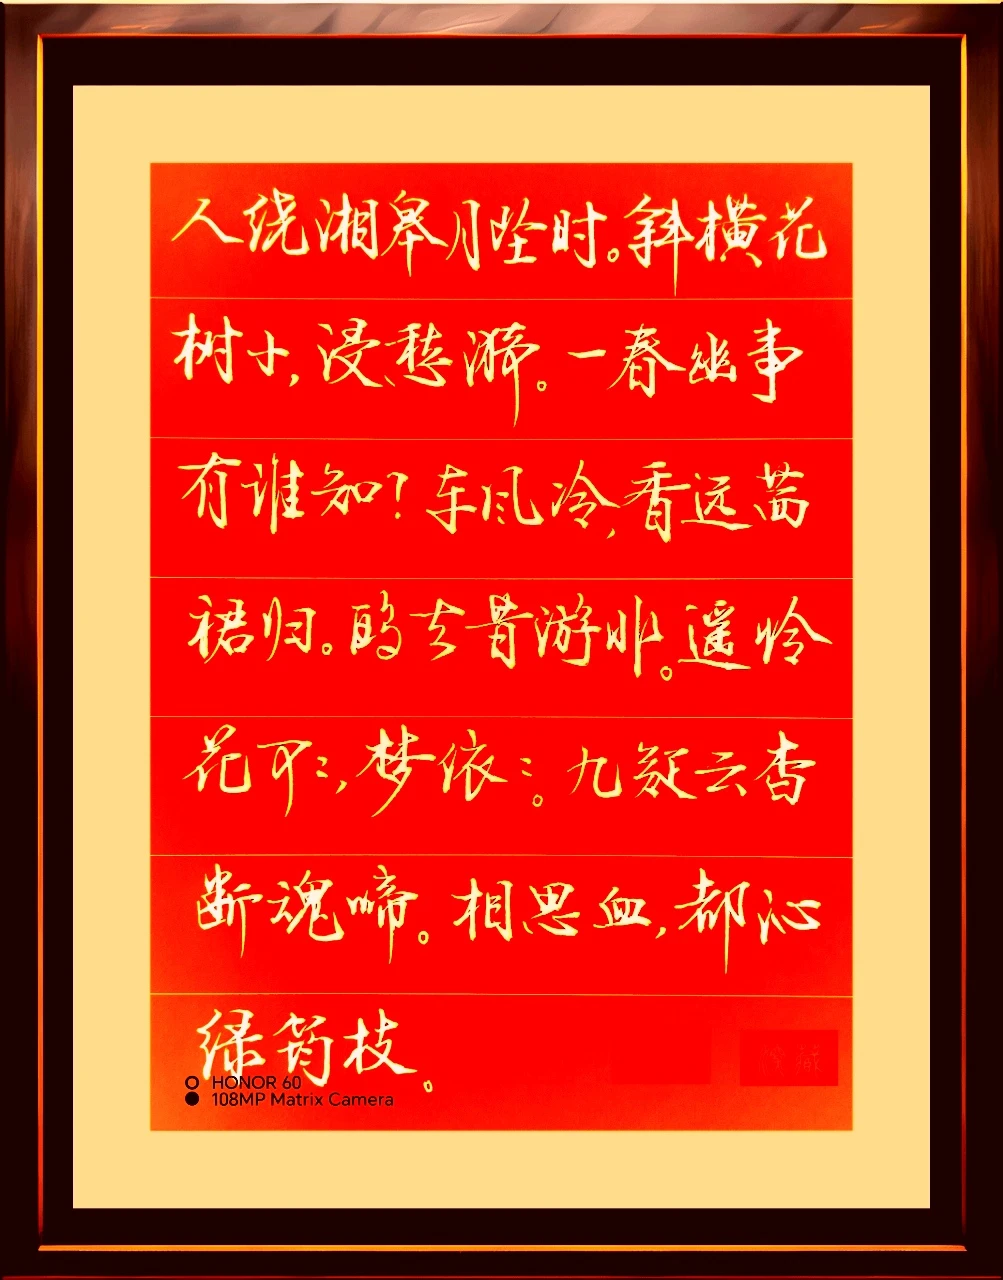 人绕湘皋月坠时。斜横花
树小,浸愁漪。一春幽事
有谁知?东风冷,香远茜
裙归。鸥去昔游非。遥怜
花可:,梦依:。九疑云杳
断魂啼。相思血,都沁
绿筠枝。
HONOR 60
108MP Matrix Camera